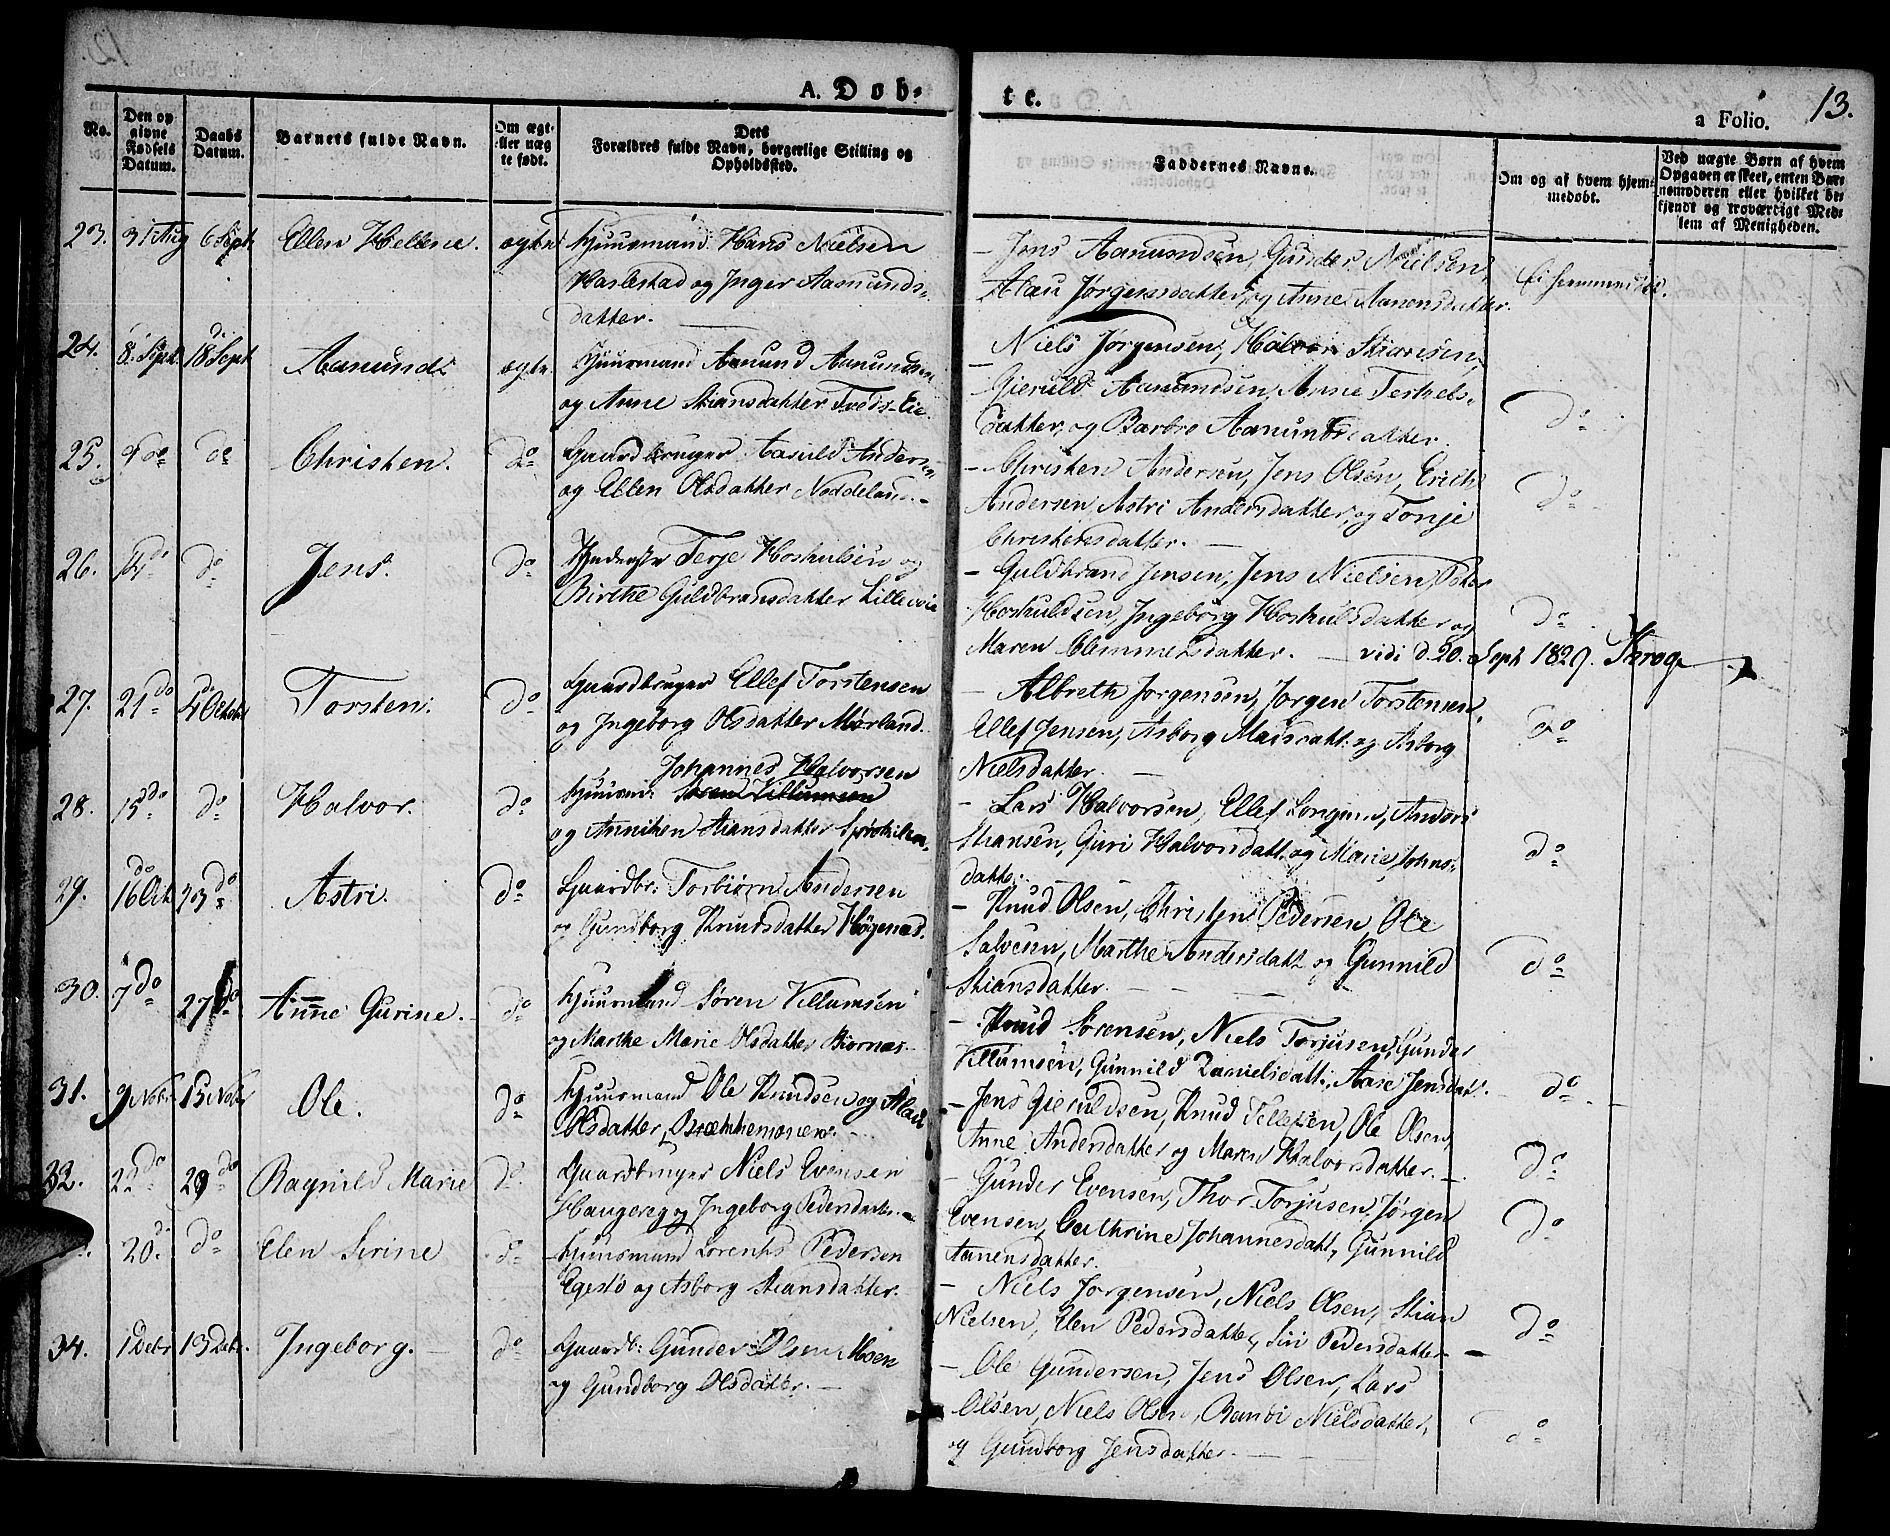 A. Døb- te.
a Folio. 13.
No. | Den opgivne Fødsels Datum. | Daabs Datum. | Barnets fulde Navn. | Om ægte eller uægte født. | Dets Forældres fulde Navn, borgerlige Stilling og Opholdssted. | Faddernes Navne. | Om og af hvem hjemmedøbt. | Ved uægte Børn af hvem Opgaven er skeet, enten Barnemoderen eller hvilket bekjendt og troværdigt Medlem af Menigheden.
23. 31 Aug 6 Sept Ellen Hellena. ægte Huusmand Hans Nielsen
Harlestad og Inger Aamunds-
datter.
– Jens Aamundsen, Gunder Nielsen,
Alau Jørgensdatter, og Anne Aanonsdatter. Ei hiemmedøbt.
24. 8. Sept. 18 Sept Aanund. ægte. Huusmand Aanund Aanundsen
og Anne Stiansdatter Tveds-Eie.
– Niels Jørgensen, Halvor Stiansen,
Gieruld Aanundsen, Anne Terkels-
datter, og Barbro Aanundsdatter. do
25. 9 do do Christen. do Gaardbruger Aasuld Andersen
og Ellen Olsdatter Noddeland.
– Christen Andersen, Jens Olsen, Erich
Andersen, Astri Andersdatter, og Tonje
Christensdatter. do
26. 14 do do Jens. do Terje Hoskulsen og
Birthe Guldbransdatter
– Guldbrand Jensen, Jens Nielsen, Peter
Hoskuldsen, Ingeborg Hoskulsdatter og
Maren Clemmetsdatter. do
– vidi d. 20. Sept 1829. Krog
27. 21 do 4 Octobr Torsten. do Gaardbruger Ellef Torstensen
og Ingeborg Olsdatter Mørland.
– Albreth Jorgensen, Jørgen Torstensen,
Ellef Jensen, Asborg Madsdatt. og Asborg
Nielsdatter. do
28. 15 do do Halvor. do Huusm: Johannes Halvorsen
og Anniken Stiansdatter
– Lars Halvorsen, Ellef Anders
Stiansen, Guri Halvorsdatt. og Marie Johns-
datter. do
29. 16 Oct 23 do Astri. do Gaardbr: Torbiørn Andersen
og Gundborg Knudsdatter Høgenæs.
– Knud Olsen, Christen Pedersen, Ole
Salvesen, Marthe Andersdatt og Gunnild
Stiansdatter. do
30. 7 do 27 do Anne Gurine. do Huusmand Søren Villumsen
og Marthe Marie Olsdatter Biornæs.
– Knud Sørensen, Niels Torjusen, Gunder
Villumsen, Gunnild Danielsdatt:, Aase Jensdatt. do
31. 9 Nobr 15 Nobr Ole. do Huusmand Ole Knudsen og
Olsdatter,
– Jens Gieruldsen, Knud Tellefsen, Ole Olsen,
Anne Andersdatter og Maren Halvorsdatter. do
32. 22 do 29 do Ragnild Marie do Gaardbruger Niels Evensen
Haugereg og Ingeborg Pedersdatter.
– Gunder Evensen, Thor Torjusen, Jørgen
Evensen, Cathrine Johannesdatt, Gunnild
Aanensdatter. do
20. do do Elen Sirine do Huusmand Lorents Pedersen
Egestø og Asborg Stiansdatter.
– Niels Jorgensen, Niels Olsen, Stian
Nielsen, Elen Pedersdatter, Siri Pedersdatter do
34. 1 Debr 13 Debr. Ingeborg. do Gaardb: Gunder Olsen Moen
og Gundborg Olsdatter.
– Ole Gundersen, Jens Olsen, Lars
Olsen, Niels Olsen, Randi Nielsdatter,
og Gundborg Jensdatter. do